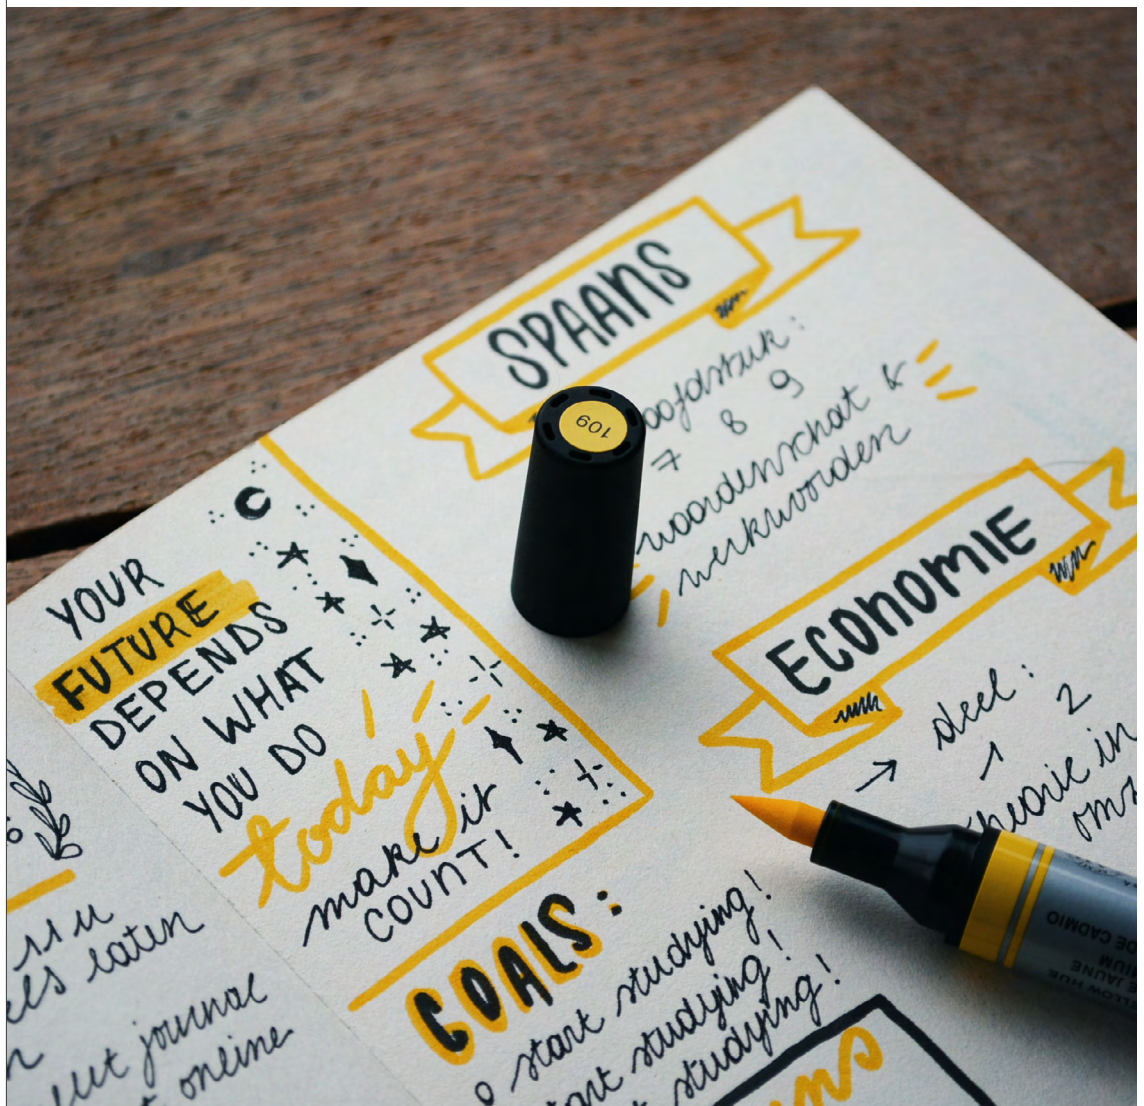 SPAANS
7 8 9
woordenschat &
werkwoorden
ECONOMIE
→ deel:
1 2
theorie in
YOUR
FUTURE
DEPENDS
ON WHAT
YOU DO
today
make it
COUNT!
GOALS:
start studying!
start studying!
studying!
laten
journal
online
109
DE CADMIO